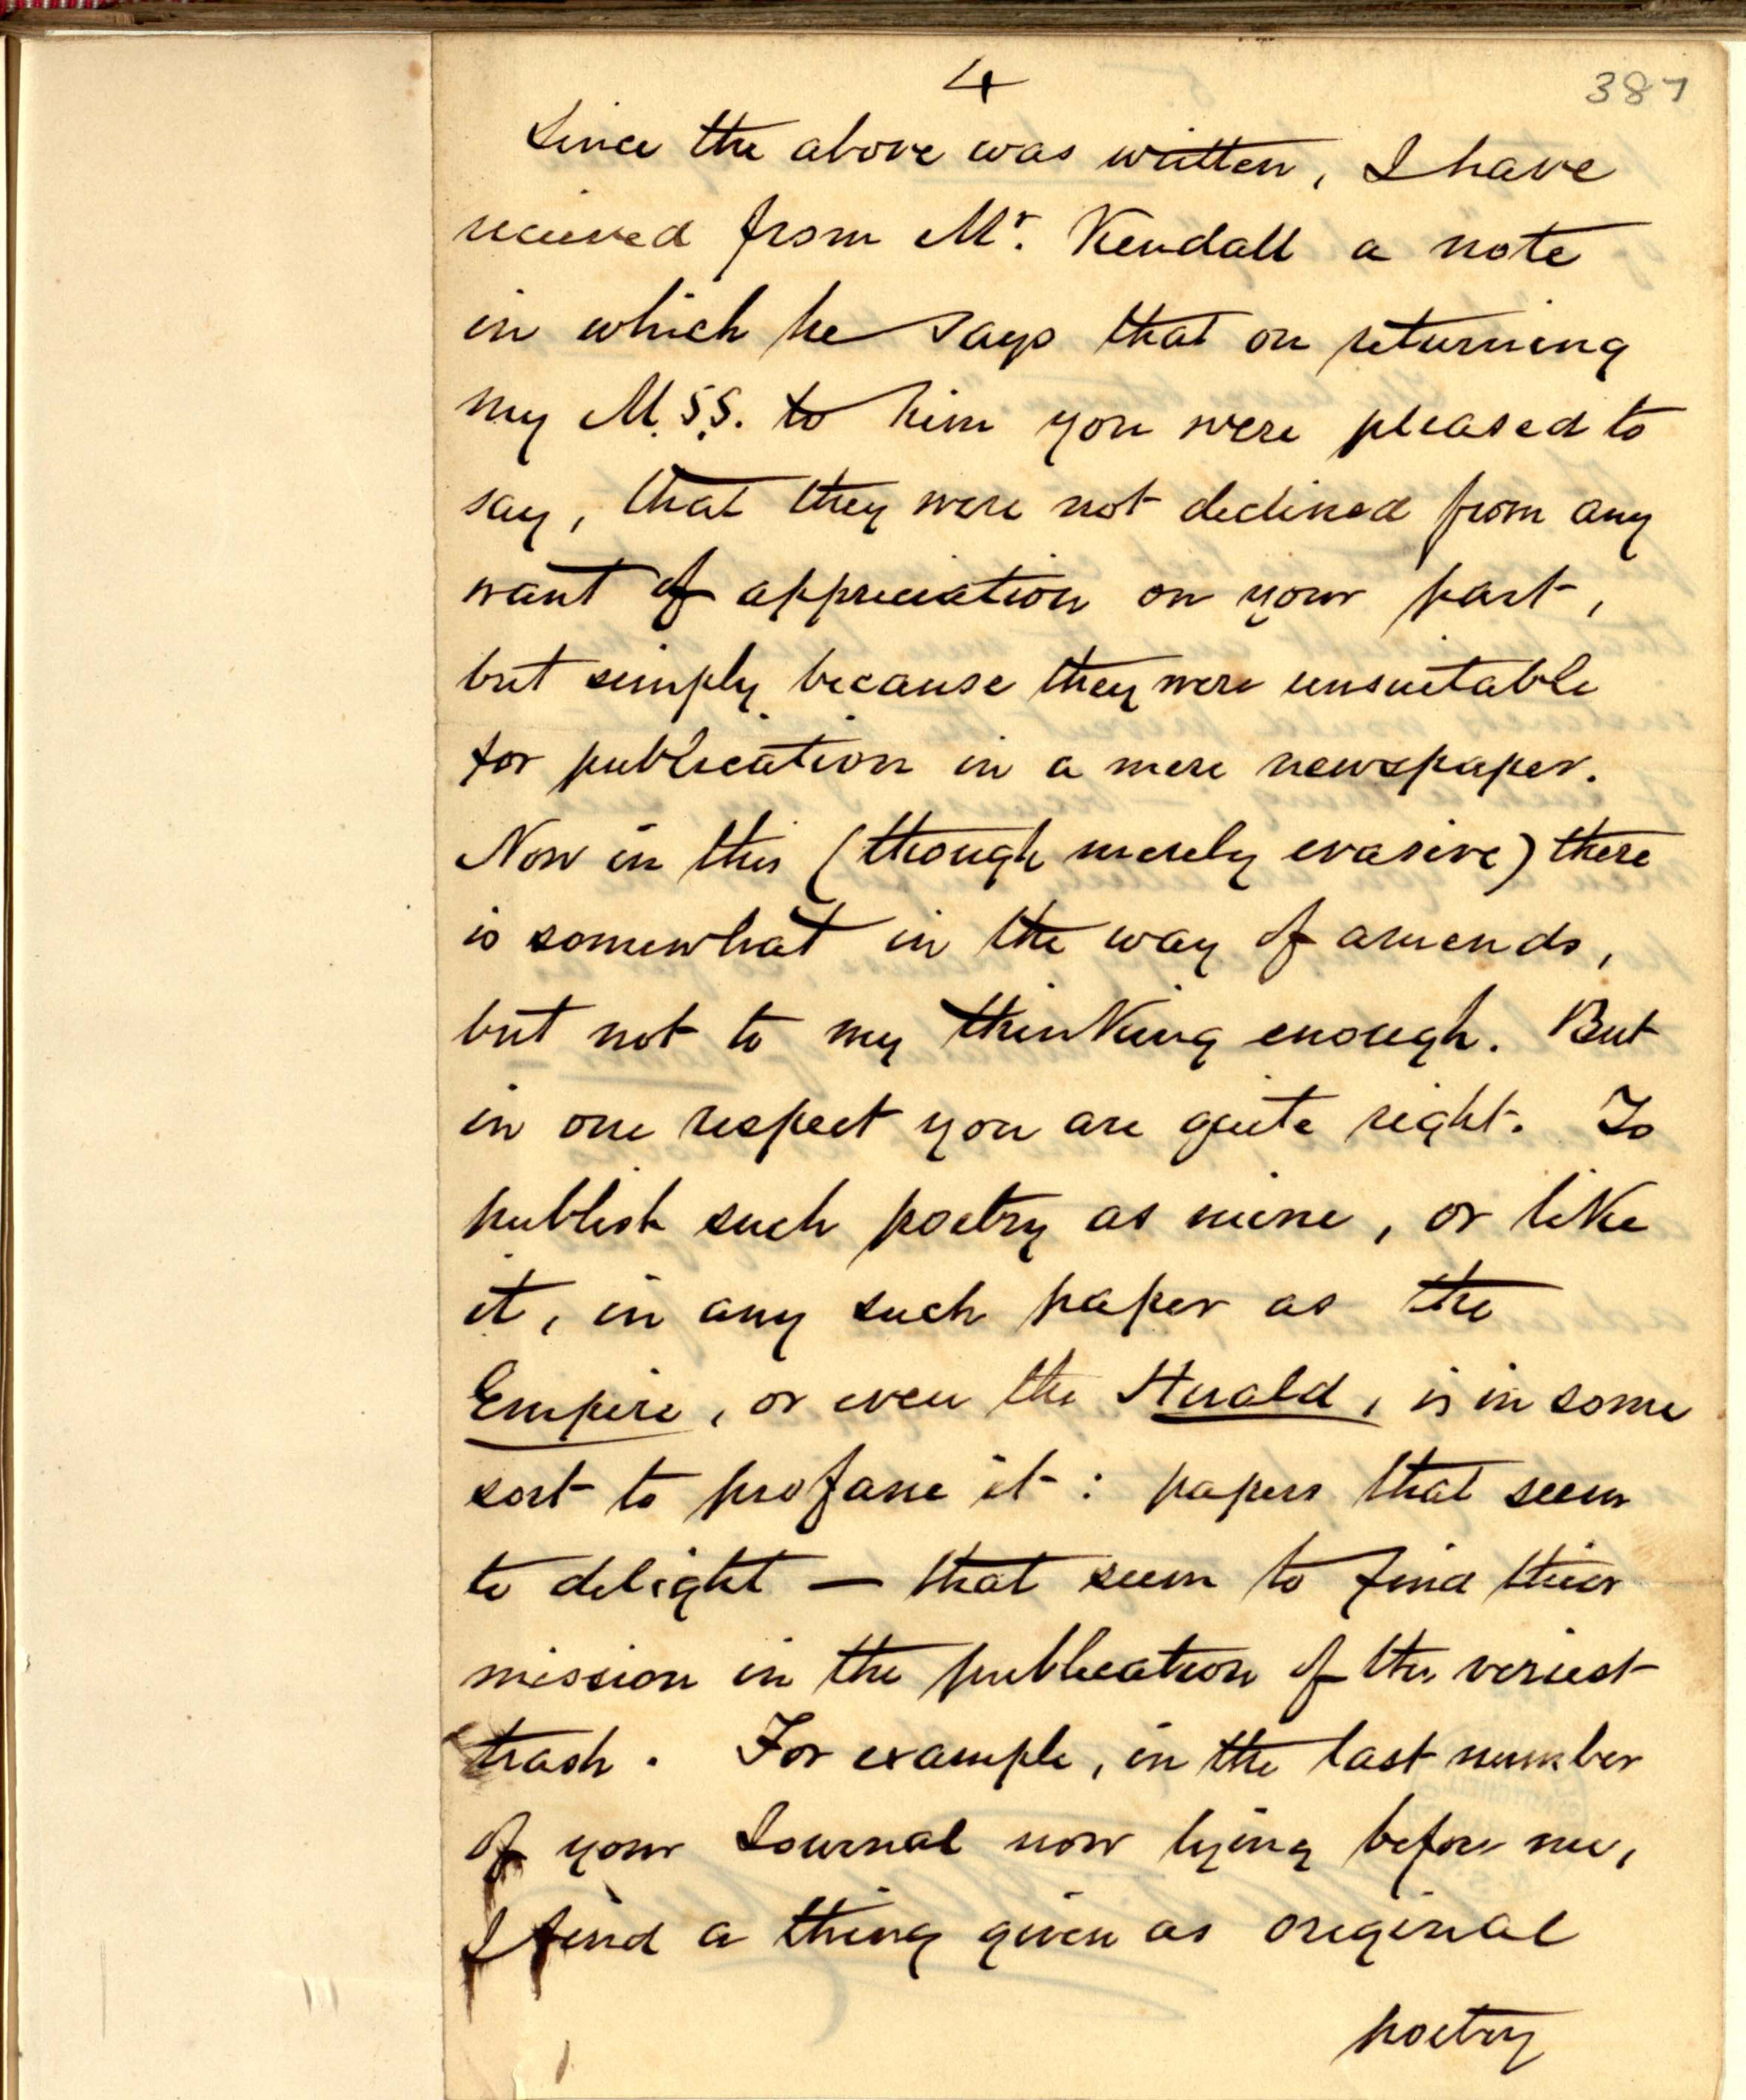 4
387
Since the above was written, I have
received from Mr. Kendall a note
in which he says that on returning
my M.SS. to him you were pleased to
say, that they were not declined from any
want of appreciation on your part,
but simply because they were unsuitable
for publication in a mere newspaper.
Now in this (though merely evasive) there
is somewhat in the way of amends,
but not to my thinking enough. But
in one respect you are quite right. To
publish such poetry as mine, or like
it, in any such paper as the
Empire, or even the Herald, is in some
sort to profane it: papers that seem
to delight — that seem to find their
mission in the publication of the veriest
trash. For example, in the last number
of your Journal now lying before me,
I find a thing given as original
poetry